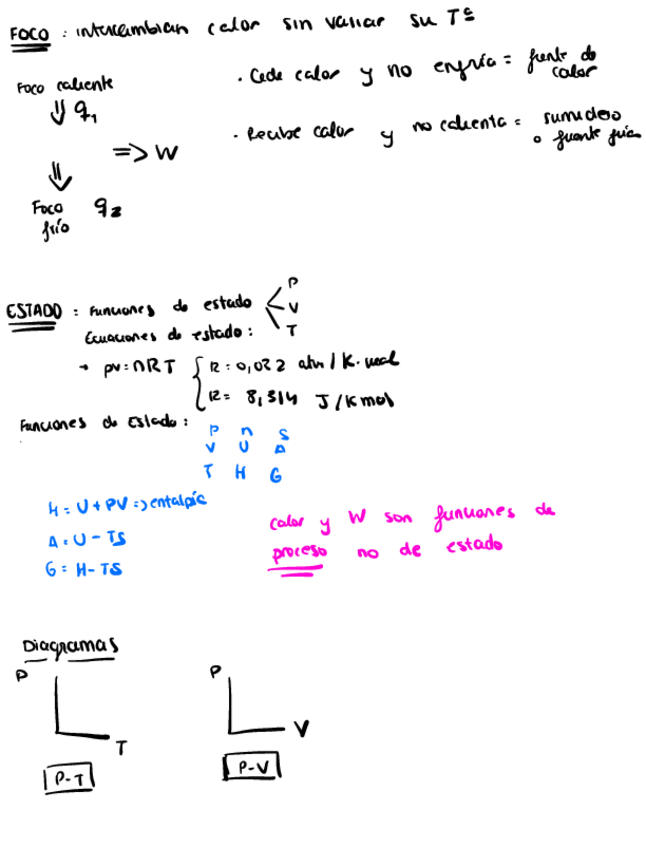 FOCO : intercambian calor sin variar su Tª
Foco caliente
⇓ q1
=> W
⇓
Foco frío q2
· Cede calor y no enfría = fuente de calor
· Recibe calor y no calienta = sumidero o fuente fría
ESTADO : Funciones de estado < P V T
Ecuaciones de estado :
→ PV = nRT { R = 0,082 atm l / K · mol
R = 8,314 J / K mol
Funciones de Estado :
P n S
V U A
T H G
H = U + PV => entalpía
A = U - TS
G = H - TS
calor y W son funciones de
proceso no de estado
Diagramas
P
T
P-T
P
V
P-V